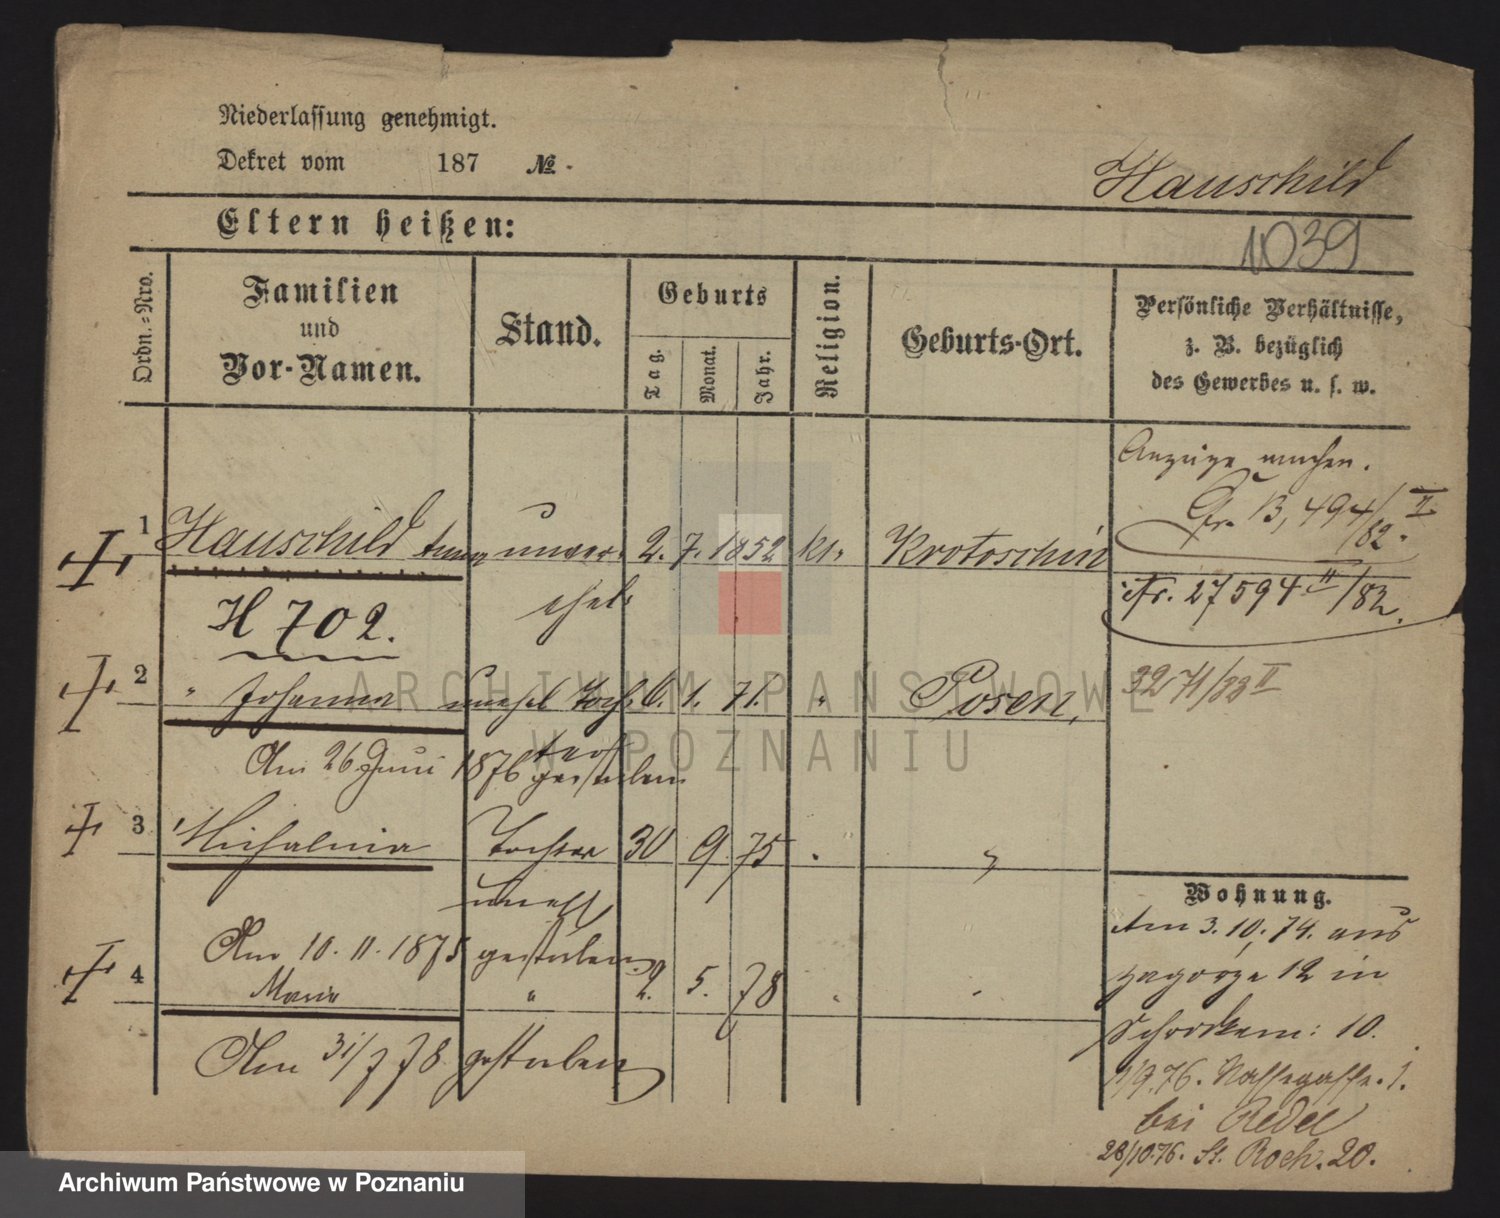 Niederlassung genehmigt.
Dekret vom 187 No.
Hauschild
Eltern heißen:
1039
Ordn.-Nro.
Familien
und
Vor-Namen.
Stand.
Geburts
Tag.
Monat.
Jahr.
Religion.
Geburts-Ort.
Persönliche Verhältnisse,
z. B. bezüglich
des Gewerbes u. s. w.
Anzüge machen.
13,494/82 II
1 Hauschild unver- 2. 7. 1852 kt. Krotoschin
ehel.
27594 II/82.
H 702.
2 " Johanna unehel Tocht. 6. 1. 71. " Posen,
3271/83 II
Am 26 Juni 1876 gestorben
3 Michalina Tochter 30 9 75 "
unehl
Am 10. 11. 1875 gestorben
4 Maria " 2. 5. 78
Am 31/7 78. gestorben
Wohnung.
Am 3. 10. 74. aus
Zagorze 12 in
Schrodkam: 10.
1/9.76. Nassegasse. 1.
bei Redel
28/10.76. St. Roch. 20.
ARCHIWUM PAŃSTWOWE
W POZNANIU
Archiwum Państwowe w Poznaniu